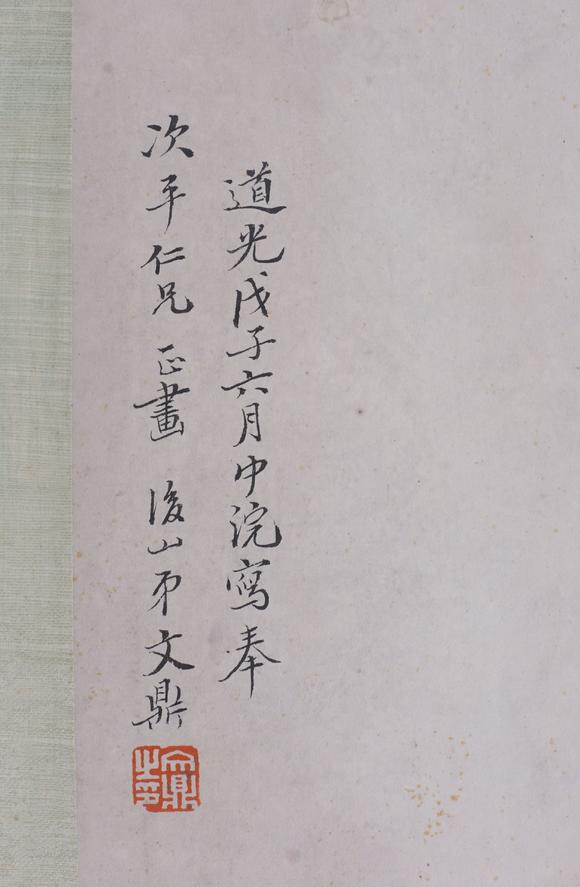 道光戊子六月中浣寫奉
次平仁兄正畫後山弟文鼎
文鼎之印